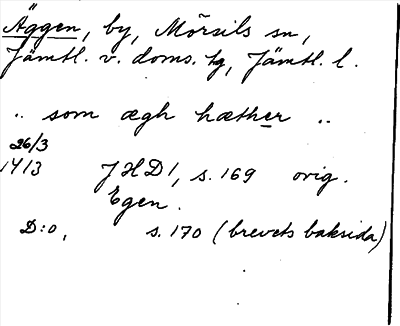 Äggen, by, Mörsils sn,
Jämtl. v. doms. tg, Jämtl. l.
.. som ægh hæther ..
26/3
1413 JHD 1, s. 169 orig.
Egen.
D:o, s. 170 (brevets baksida)